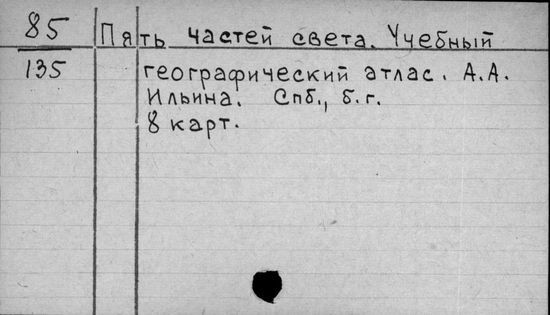 85 Пять частей света. Учебный
135 географический атлас. А.А.
Ильина. Спб., б.г.
8 карт.